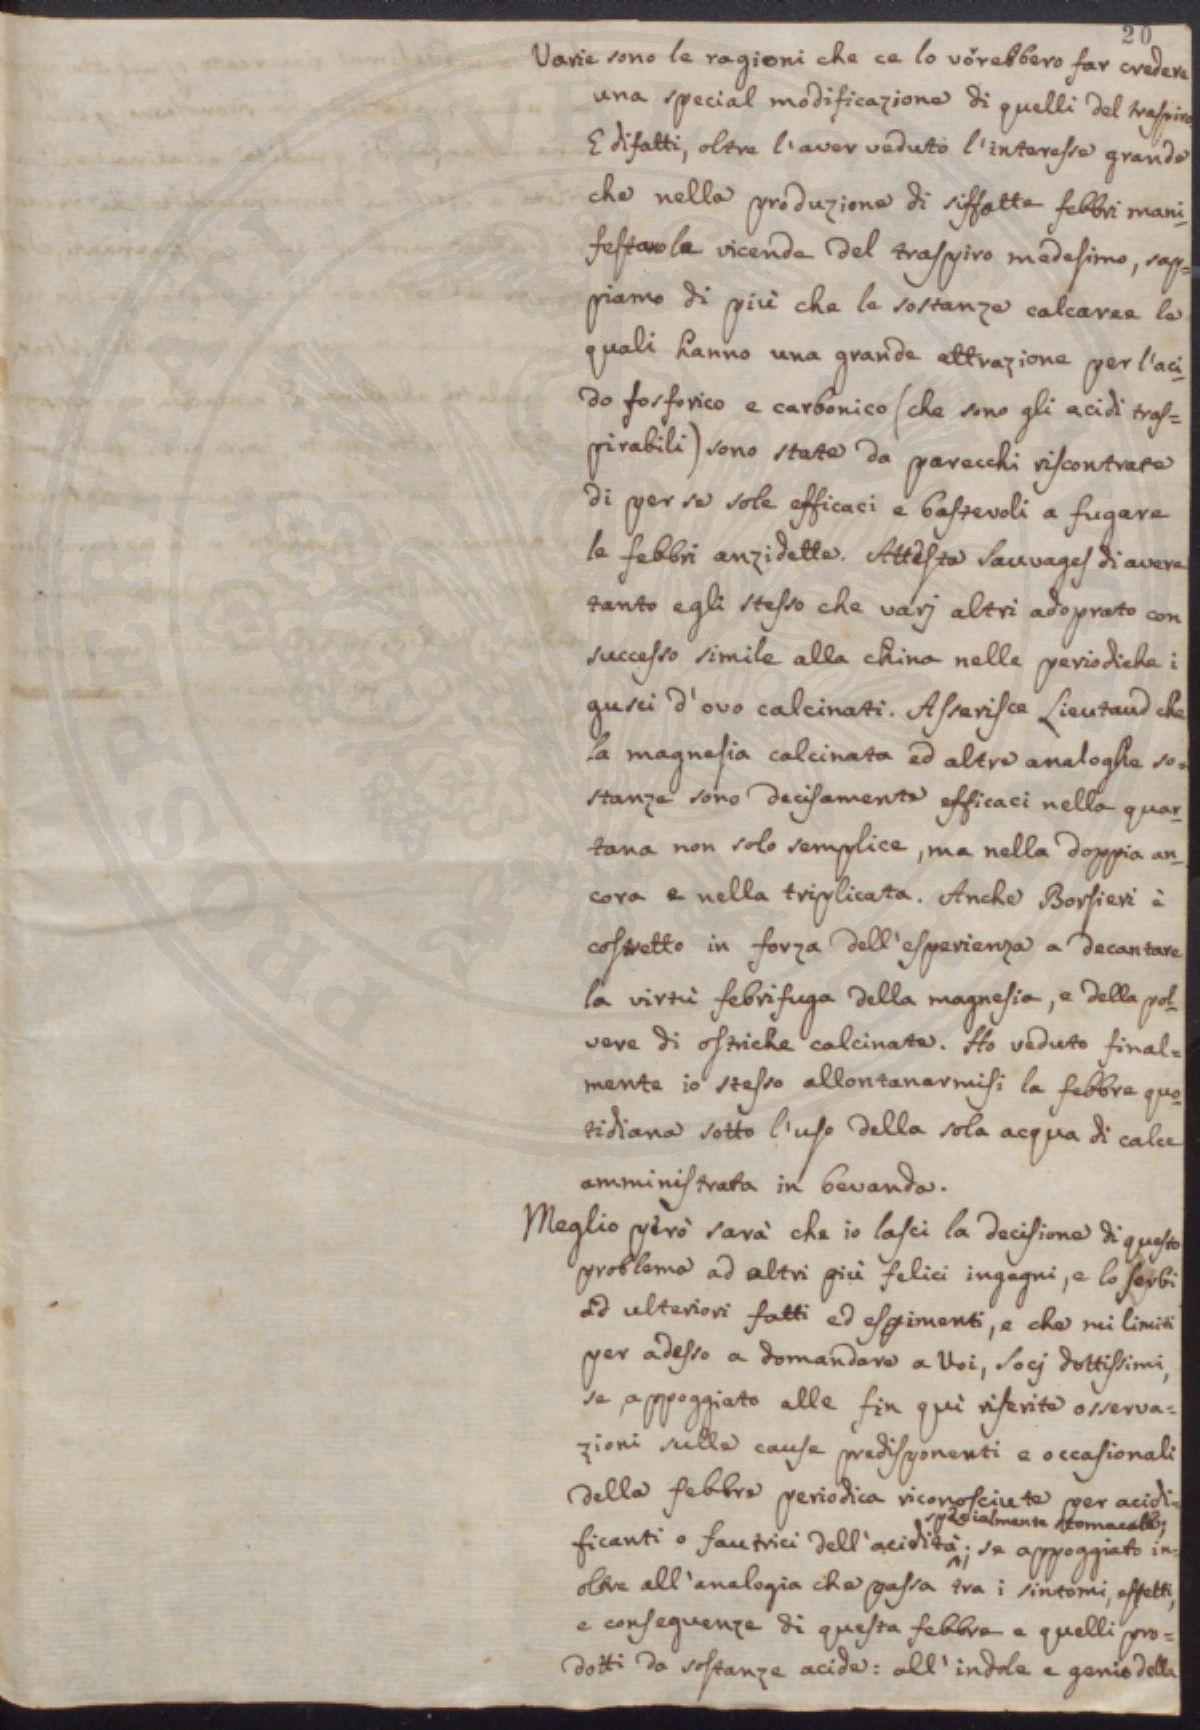 20
Varie sono le ragioni che ce lo vorebbero far credere
una special modificazione di quelli del traspiro
E difatti, oltre l'aver veduto l'interesse grande
che nella produzione di siffatte febbri mani-
festano le vicende del traspiro medesimo, sap=
piamo di più che le sostanze calcaree le
quali hanno una grande attrazione per l'aci-
do fosforico e carbonico (che sono gli acidi tras=
pirabili) sono state da parecchi riscontrate
di per se sole efficaci e bastevoli a fugare
le febbri anzidette. Attesta Sauvages di avere
tanto egli stesso che varj altri adoprato con
successo simile alla china nelle periodiche i
gusci d'ovo calcinati. Asserisce Lieutaud che
la magnesia calcinata ed altre analoghe so=
stanze sono decisamente efficaci nella quar-
tana non solo semplice, ma nella doppia an-
cora e nella triplicata. Anche Borsieri è
costretto in forza dell'esperienza a decantare
la virtù febrifuga della magnesia, e della pol-
vere di ostriche calcinate. Ho veduto final=
mente io stesso allontanarmisi la febbre quo-
tidiana sotto l'uso della sola acqua di calce
amministrata in bevanda.
Meglio però sarà che io lasci la decisione di questo
problema ad altri più felici ingegni, e lo serbi
ad ulteriori fatti ed espimenti, e che mi limiti
per adesso a domandare a Voi, Socj dottissimi,
se appoggiato alle fin qui riferite osserva=
zioni sulle cause predisponenti e occasionali
della febbre periodica riconosciute per acidi=
specialmente stomacale;
ficanti o fautrici dell'acidità; se appoggiato in=
oltre all'analogia che passa tra i sintomi, effetti,
e conseguenze di questa febbre e quelli pro=
dotti da sostanze acide: all'indole e genio della